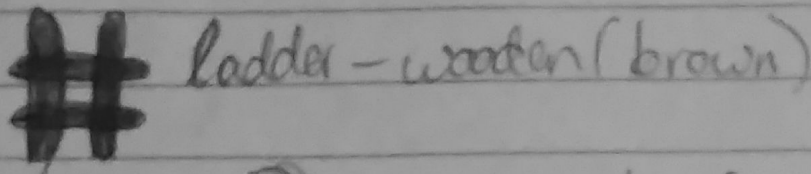 ladder - wooden (brown)